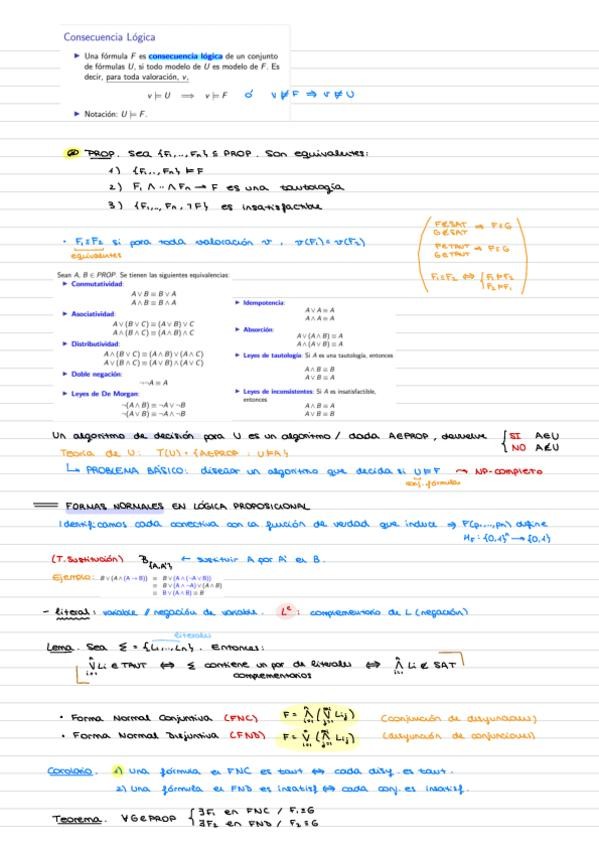 Consecuencia Lógica
▶ Una fórmula F es consecuencia lógica de un conjunto
de fórmulas U, si todo modelo de U es modelo de F. Es
decir, para toda valoración, v,
v ⊨ U ⟹ v ⊨ F ó v ⊭ F ⇒ v ⊭ U
▶ Notación: U ⊨ F.
PROP. Sea {F₁,..,Fₙ} ⊆ PROP. Son equivalentes:
1) {F₁,..,Fₙ} ⊨ F
2) F₁ ∧ ·· ∧ Fₙ → F es una tautología
3) {F₁,..,Fₙ, ¬F} es insatisfactible
F∉SAT
G∉SAT ⇒ F≡G
F∈TAUT
G∈TAUT ⇒ F≡G.
F₁≡F₂ ⇔ { F₁⊨F₂
F₂⊨F₁
· F₁≡F₂ si para toda valoración v, v(F₁) = v(F₂)
equivalentes
Sean A, B ∈ PROP. Se tienen las siguientes equivalencias:
▶ Conmutatividad:
A ∨ B ≡ B ∨ A
A ∧ B ≡ B ∧ A
▶ Asociatividad:
A ∨ (B ∨ C) ≡ (A ∨ B) ∨ C
A ∧ (B ∧ C) ≡ (A ∧ B) ∧ C
▶ Distributividad:
A ∧ (B ∨ C) ≡ (A ∧ B) ∨ (A ∧ C)
A ∨ (B ∧ C) ≡ (A ∨ B) ∧ (A ∨ C)
▶ Doble negación:
¬¬A ≡ A
▶ Leyes de De Morgan:
¬(A ∧ B) ≡ ¬A ∨ ¬B
¬(A ∨ B) ≡ ¬A ∧ ¬B
▶ Idempotencia:
A ∨ A ≡ A
A ∧ A ≡ A
▶ Absorción:
A ∨ (A ∧ B) ≡ A
A ∧ (A ∨ B) ≡ A
▶ Leyes de tautología: Si A es una tautología, entonces
A ∧ B ≡ B
A ∨ B ≡ A
▶ Leyes de inconsistentes: Si A es insatisfactible,
entonces
A ∧ B ≡ A
A ∨ B ≡ B
Un algoritmo de decisión para U es un algoritmo / dada A∈PROP, devuelve { SI A∈U
NO A∉U
Teoría de U: T(U) = {A∈PROP : U⊨A}
↳ PROBLEMA BÁSICO: diseñar un algoritmo que decida si U⊨F → NP-completo
conj. fórmulas
FORMAS NORMALES EN LÓGICA PROPOSICIONAL
Identificamos cada conectiva con la función de verdad que induce ⇒ F(p₁,...,pₙ) define
H_F : {0,1}ⁿ → {0,1}
(T. Sustitución) B{A,A'} ← sustituir A por A' en B.
Ejemplo: B ∨ (A ∧ (A → B)) ≡ B ∨ (A ∧ (¬A ∨ B))
≡ B ∨ (A ∧ ¬A) ∨ (A ∧ B)
≡ B ∨ (A ∧ B) ≡ B
- literal: variable // negación de variable. Lᶜ : complementario de L (negación)
literales
Lema. Sea Σ = {L₁,...,Lₙ}. Entonces:
⋁ᵢ₌₁ⁿ Lᵢ ∈ TAUT ⇔ Σ contiene un par de literales ⇔ ⋀ᵢ₌₁ⁿ Lᵢ ∉ SAT
complementarios
· Forma Normal Conjuntiva (FNC) F = ⋀ᵢ₌₁ⁿ (⋁ⱼ₌₁ᵐⁱ Lᵢⱼ) (conjunción de disyunciones)
· Forma Normal Disjuntiva (FND) F = ⋁ᵢ₌₁ⁿ (⋀ⱼ₌₁ᵐⁱ Lᵢⱼ) (disyunción de conjunciones)
Corolario. 1) Una fórmula en FNC es taut ⇔ cada disy. es taut.
2) Una fórmula en FND es insatisf ⇔ cada conj. es insatisf.
Teorema. ∀G∈PROP { ∃F₁ en FNC / F₁≡G
∃F₂ en FND / F₂≡G